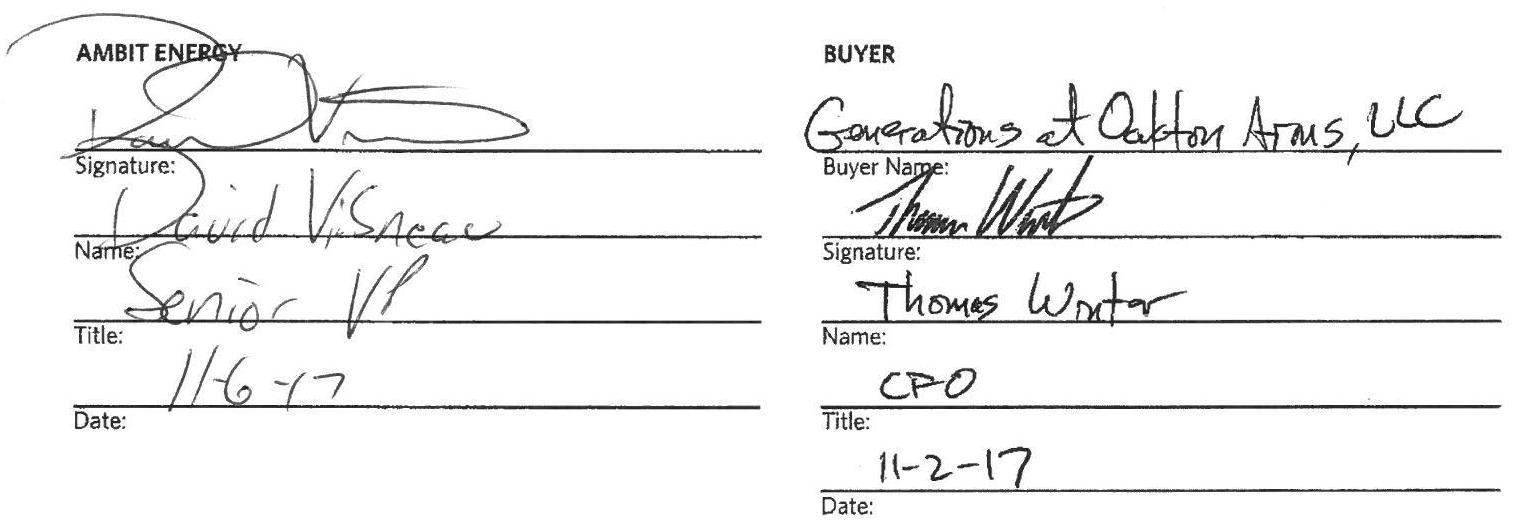 AMBIT ENERGY
Signature:
David Visneau
Name:
Senior VP
Title:
11-6-17
Date:
BUYER
Generations at Oakton Arms, LLC
Buyer Name:
Signature:
Thomas Winter
Name:
CFO
Title:
11-2-17
Date: